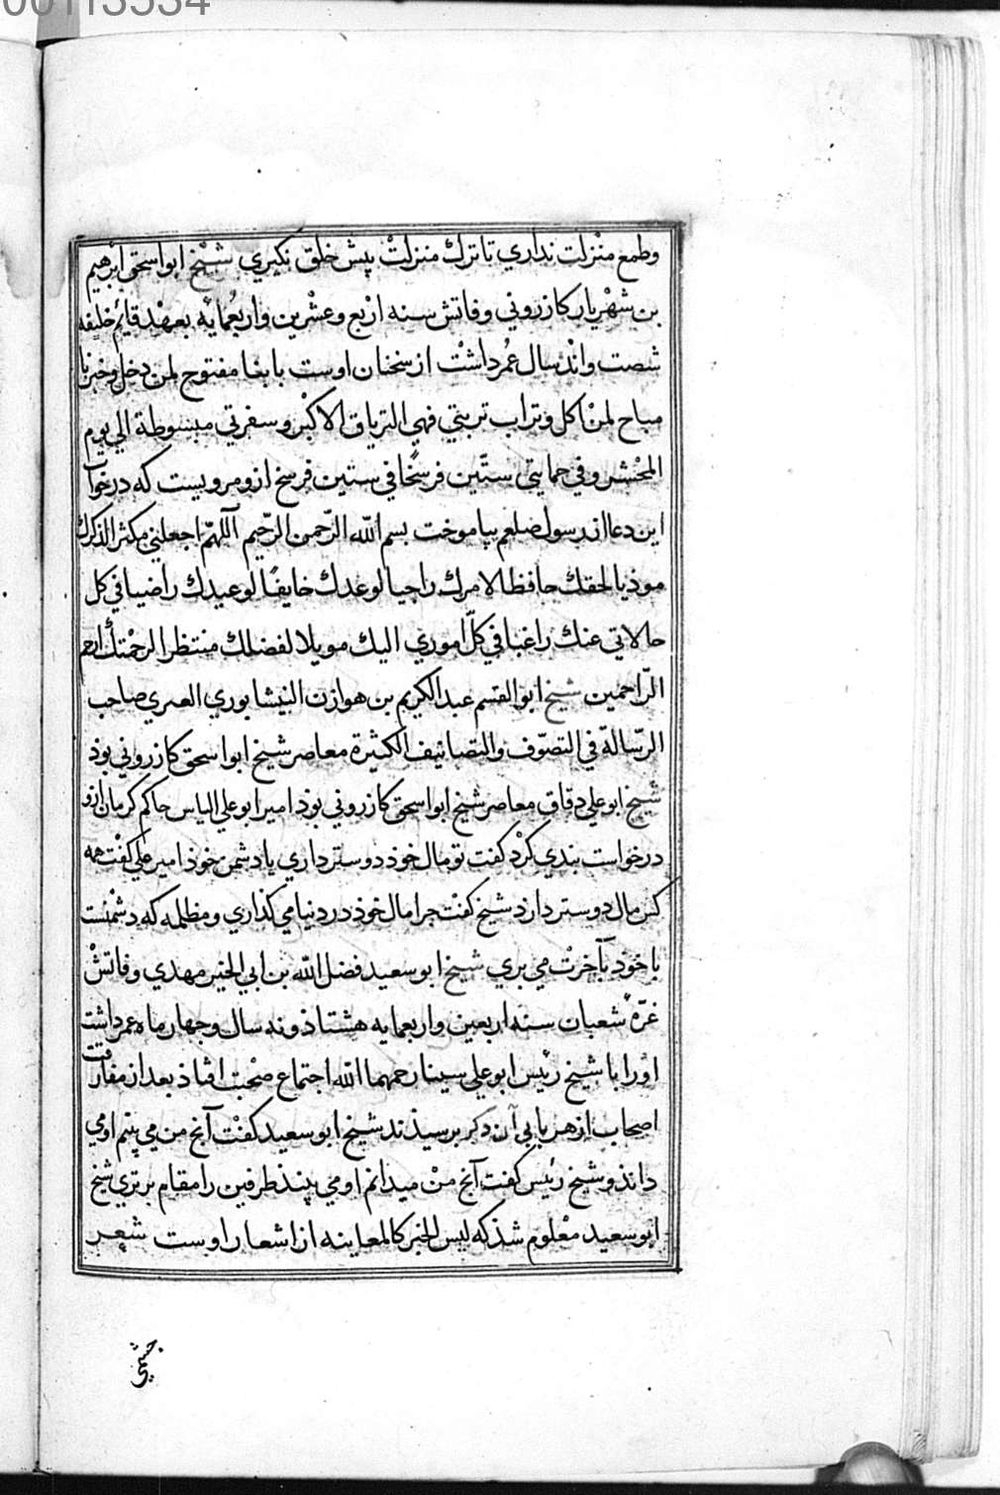 00113534
وطمع منزلت نداري تا ترك منزلت پيش خلق نكيري شيخ ابواسحق ابرهيم
بن شهريار كازروني وفاتش سنه اربع وعشرين واربعمايه بعهد قايم خليفه
شصت واند سال عمر داشت از سخنان اوست بابنا مفتوح لمن دخل وخبزنا
مباح لمن اكل وتراب تربتي فهي الترياق الاكبر وسفرتي مبسوطة الي يوم
المحشر وفي حمايتي ستين فرسخا في ستين فرسخ ازو مرويست كه در خواب
اين دعا از رسول صلعم بياموخت بسم الله الرحمن الرحيم اللهم اجعلني مكثر الذكرك
موذيا لحقك حافظا لامرك راجيا لوعدك خايفا لوعيدك راضيا في كل
حالاتي عنك راغبا في كل اموري اليك مويلا لفضلك منتظرا لرحمتك ارحم
الراحمين شيخ ابوالقسم عبدالكريم بن هوازن النيشابوري صاحب
الرسالة في التصوف والتصانيف الكثيرة معاصر شيخ ابواسحق كازروني بوذ
شيخ ابوعلي دقاق معاصر شيخ ابواسحق كازروني بوذ امير ابوعلي الياس حاكم كرمان ازو
درخواست بندي كرد كفت تو مال خوذ دوستر داري يا دشمن خوذ امير علي كفت همه
كس مال دوستر دارد شيخ كفت جرا مال خوذ در دنيا مي كذاري ومظلمه كه دشمنست
با خوذ بآخرت مي بري شيخ ابوسعيد فضل الله بن ابي الخير مهدي وفاتش
غرة شعبان سنه اربعين واربعمايه هشتاذ ونه سال وجهار ماه عمر داشت
اورا با شيخ رئيس ابوعلي سينا رحمهما الله اجتماع صحبت افتاذ بعد از مفارقت
اصحاب از هريكي آن ذكر برسيذند شيخ ابوسعيد كفت آنج من مي بينم او مي
داند وشيخ رئيس كفت آنج من ميدانم او مي بيند طرفين را مقام برتري شيخ
ابوسعيد معلوم شذ كه ليس الخبر كالمعاينه از اشعار اوست شعر